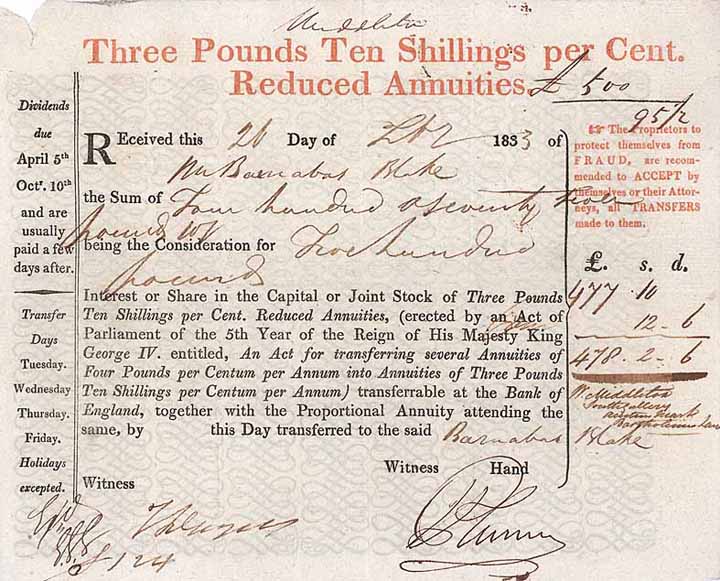 Middleton
Three Pounds Ten Shillings per Cent.
Reduced Annuities. £ 500
95 1/2
Dividends
due
April 5th
Octr. 10th
and are
usually
paid a few
days after.
Transfer
Days
Tuesday.
Wednesday
Thursday.
Friday.
Holidays
excepted.
REceived this 26 Day of 1833 of
Mr Barnabas Blake
the Sum of Four hundred & seventy seven
pounds 10/
being the Consideration for Five hundred
pounds
Interest or Share in the Capital or Joint Stock of Three Pounds
Ten Shillings per Cent. Reduced Annuities, (erected by an Act of
Parliament of the 5th Year of the Reign of His Majesty King
George IV. entitled, An Act for transferring several Annuities of
Four Pounds per Centum per Annum into Annuities of Three Pounds
Ten Shillings per Centum per Annum) transferrable at the Bank of
England, together with the Proportional Annuity attending the
same, by this Day transferred to the said Barnabas Blake
Witness Hand
Witness
☞ The Proprietors to
protect themselves from
FRAUD, are recom-
mended to ACCEPT by
themselves or their Attor-
neys, all TRANSFERS
made to them.
£. s. d.
477 . 10
12 . 6
478 . 2 . 6
W. Middleton
Bartholomew Lane
124